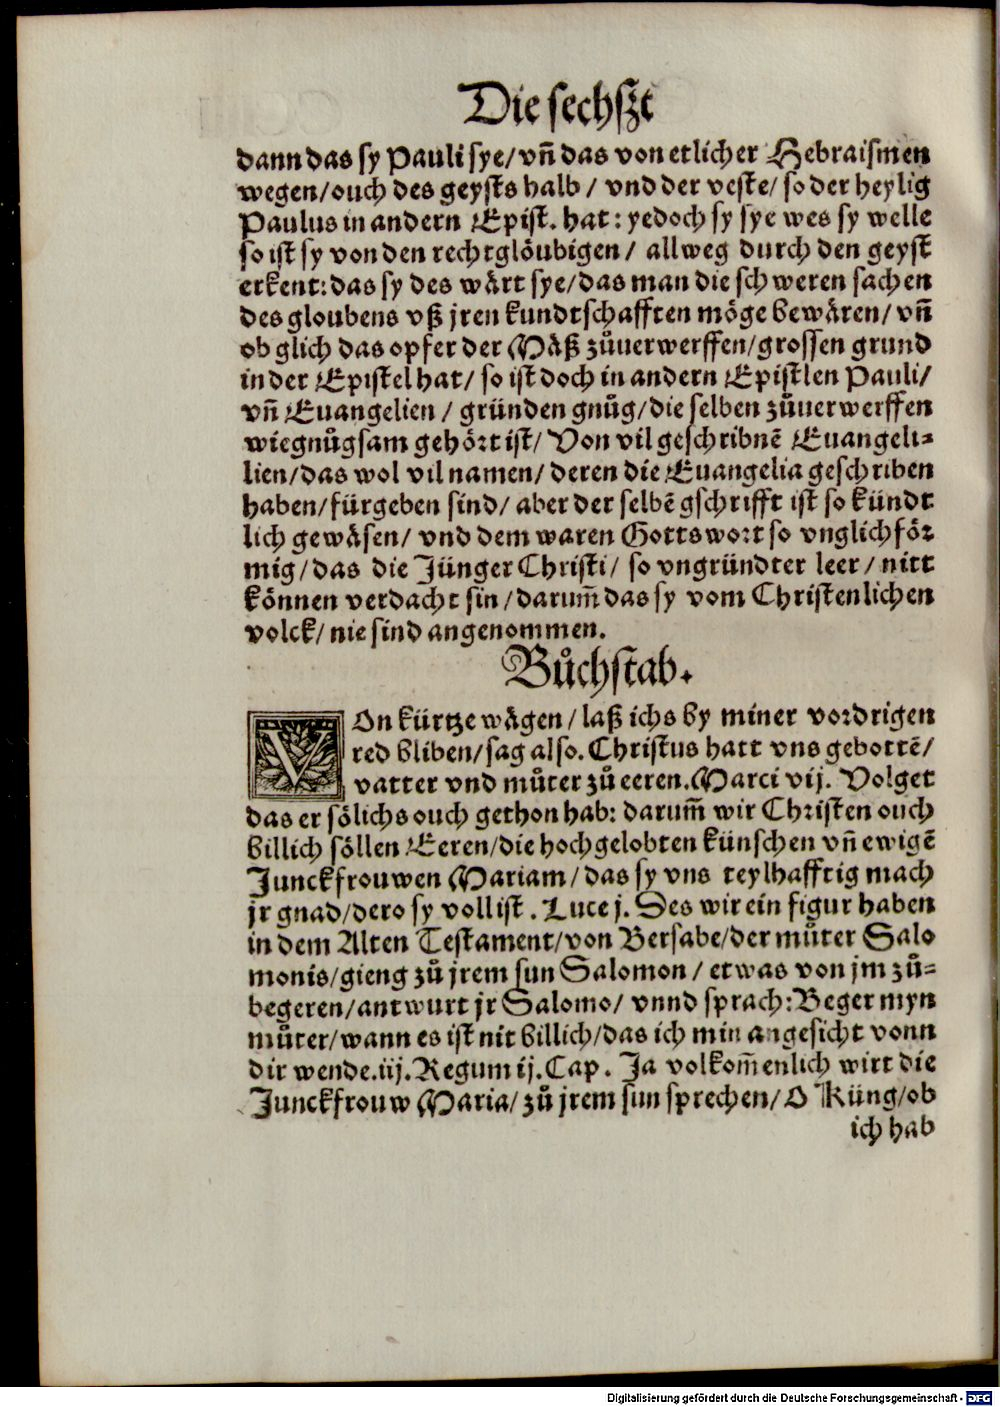 Die sechſzt
dann das ſy Pauli ſye/ vñ das von etlicher Hebraiſmen
wegen/ ouch des geyſts halb / vnd der veſte/ ſo der heylig
Paulus in andern Epiſt. hat: yedoch ſy ſye wes ſy welle
ſo iſt ſy von den rechtglöubigen/ allweg durch den geyſt
erkent: das ſy des wärt ſye/ das man die ſchweren ſachen
des gloubens vß jren kundtſchafften möge bewären/ vñ
ob glich das opfer der Mäß zůuerwerffen/ groſſen grund
in der Epiſtel hat/ ſo iſt doch in andern Epiſtlen Pauli/
vñ Euangelien / gründen gnůg/ die ſelben zůuerwerffen
wiegnůgſam gehört iſt/ Von vil geſchribnē Euangeli⸗
lien/ das wol vil namen/ deren die Euangelia geſchriben
haben/ fürgeben ſind/ aber der ſelbē gſchrifft iſt ſo kündt
lich gewäſen/ vnd dem waren Gotts wort ſo vnglichför
mig/ das die Jünger Chriſti/ ſo vngründter leer/ nitt
können verdacht ſin/ darum̃ das ſy vom Chriſtenlichen
volck/ nie ſind angenommen.
Bůchſtab.
VOn kürtze wägen/ laß ichs by miner vordrigen
red bliben/ ſag alſo. Chriſtus hatt vns gebottē/
vatter vnd můter zů eeren. Marci vij. Volget
das er ſölichs ouch gethon hab: darum̃ wir Chriſten ouch
billich ſöllen Eeren/ die hochgelobten künſchen vñ ewigē
Junckfrouwen Mariam/ das ſy vns teylhafftig mach
jr gnad/ dero ſy voll iſt. Luce j. Des wir ein figur haben
in dem Alten Teſtament/ von Berſabe/ der můter Salo
monis/ gieng zů jrem ſun Salomon/ etwas von jm zů⸗
begeren/ antwurt jr Salomo/ vnnd ſprach: Beger myn
můter/ wann es iſt nit billich/ das ich min angeſicht vonn
dir wende. iij. Regum ij. Cap. Ja volkom̃enlich wirt die
Junckfrouw Maria/ zů jrem ſun ſprechen/ O Küng/ ob
ich hab
Digitalisierung gefördert durch die Deutsche Forschungsgemeinschaft - DFG